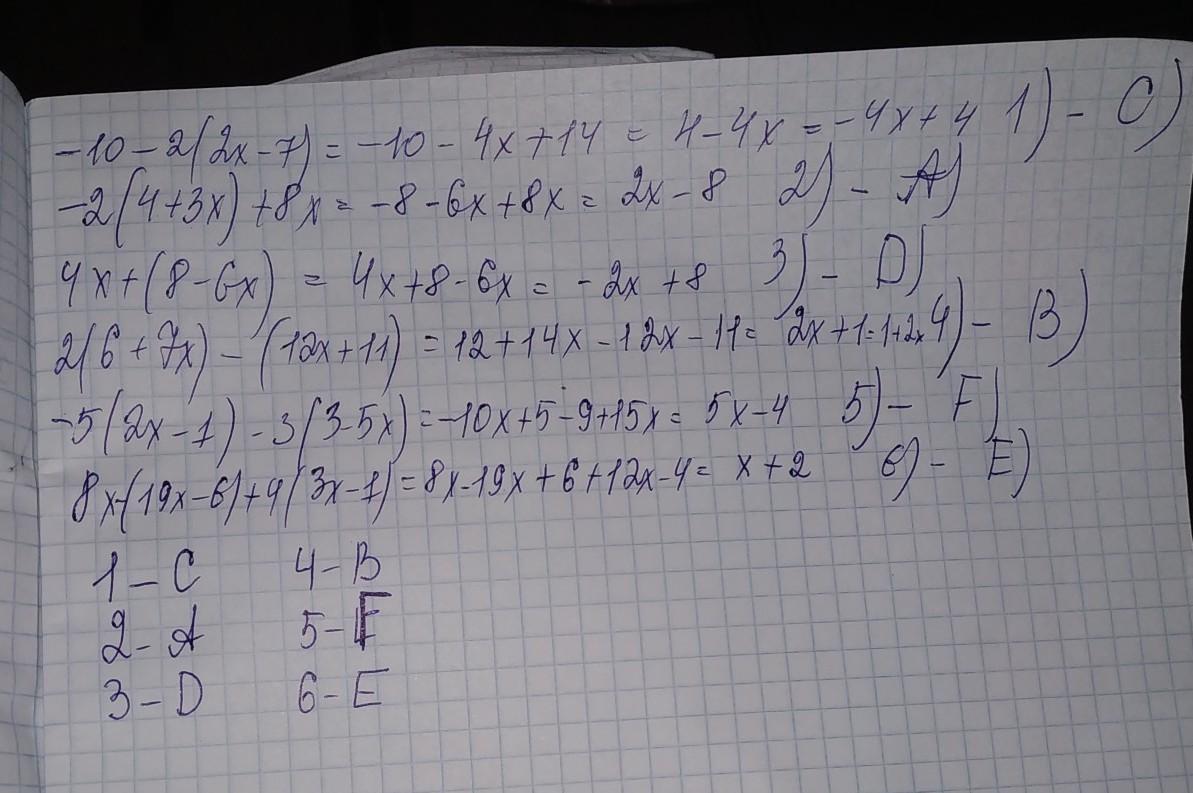 -10-2(2x-7)=-10-4x+14=4-4x=-4x+4 1)-C)
-2(4+3x)+8x=-8-6x+8x=2x-8 2)-A)
4x+(8-6x)=4x+8-6x=-2x+8 3)-D)
2(6+7x)-(12x+11)=12+14x-12x-11=2x+1=1+2x 4)-B)
-5(2x-1)-3(3-5x)=-10x+5-9+15x=5x-4 5)-F)
8x-(19x-6)+4(3x-1)=8x-19x+6+12x-4=x+2 6)-E)
1-C 4-B
2-A 5-F
3-D 6-E